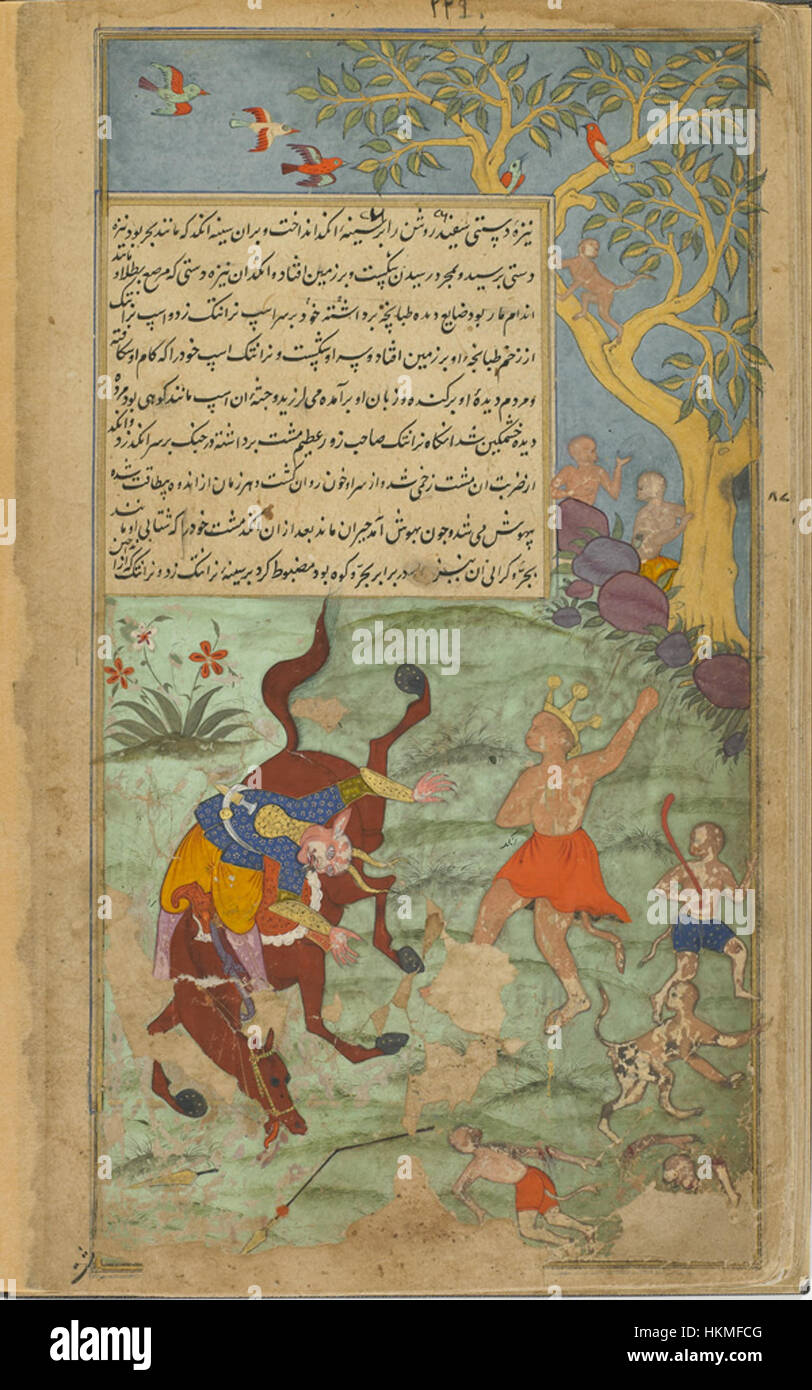 ٢٢٩
نیزهٔ دستی سفید روشن را بر سینهٔ انکد انداخت و بران سینهٔ انکد که مانند بجر بود نیزه
دستی رسید و بمجرد رسیدن شکست و بر زمین افتاد و انکد ان نیزه دستی که مرصع بطلا و مانند
اندام مار بود ضایع دیده طبانچهٔ برداشته خود بر سر اسپ نرانتک زد و اسپ نرانتک
از زخم طبانچهٔ او بر زمین افتاد و سر او شکست و نرانتک اسپ خود را که کام او شکافته
و مردم دیدهٔ او برکنده و زبان او برآمده می لرزید و جثهٔ ان اسپ مانند کوهی بود مرده
دیده خشمکین شد انکاه نرانتک صاحب زور عظیم مشت برداشته در جنک بر سر انکد زد و انکد
از ضربت ان مشت زخمی شد و از سر او خون روان کشت و هر زمان از اندوه بیطاقت شده
بیهوش می شد و چون بهوش آمد حیران ماند بعد از ان انکد مشت خود را که شتابی او مانند
بجر و کرانی ان نیز در برابر بجر و کوه بود مضبوط کرد بر سینهٔ نرانتک زد و نرانتک که از ان
انکد
٨٧
alamy
alamy
Image ID: HKMFCG
www.alamy.com